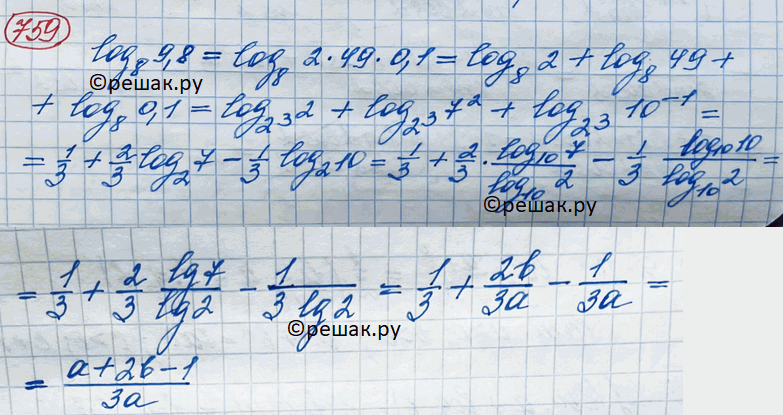 759
log₈ 9,8 = log₈ 2·49·0,1 = log₈ 2 + log₈ 49 +
©решак.ру
+ log₈ 0,1 = log₂³ 2 + log₂³ 7² + log₂³ 10⁻¹ =
= 1/3 + 2/3 log₂ 7 − 1/3 log₂ 10 = 1/3 + 2/3 · log₁₀ 7 / log₁₀ 2 − 1/3 log₁₀ 10 / log₁₀ 2 =
©решак.ру
= 1/3 + 2/3 lg 7 / lg 2 − 1 / 3 lg 2 = 1/3 + 2b/3a − 1/3a =
©решак.ру
= a + 2b − 1 / 3a